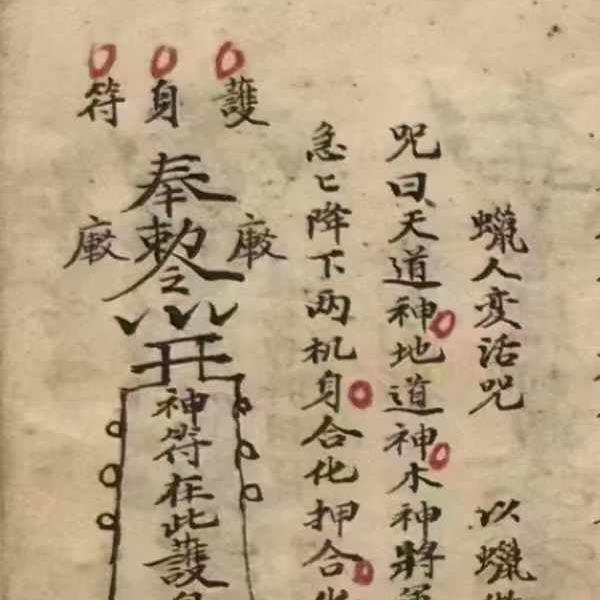 蠟人変活咒 以蠟
咒曰天道神地道神木神將
急〻降下两机身合化押合
護身符
奉敕令
神符在此護